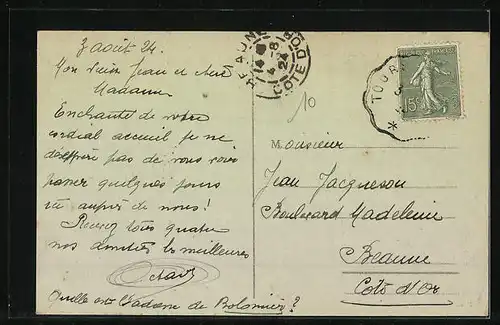 3 août 24.
Mon vieux Jean et chère
Madame
Enchanté de votre
cordial accueil je ne
désespère pas de vous voir
passer quelques jours
ici auprès de nous!
Recevez tous quatre
nos amitiés les meilleures
Octave
Quelle est l'adresse de Bolomier?
BEAUNE
14
4 -8
24
COTE D'OR
10
TOUR
3
15
Monsieur
Jean Jacqueson
Boulevard Madeleine
Beaune
Côte d'Or